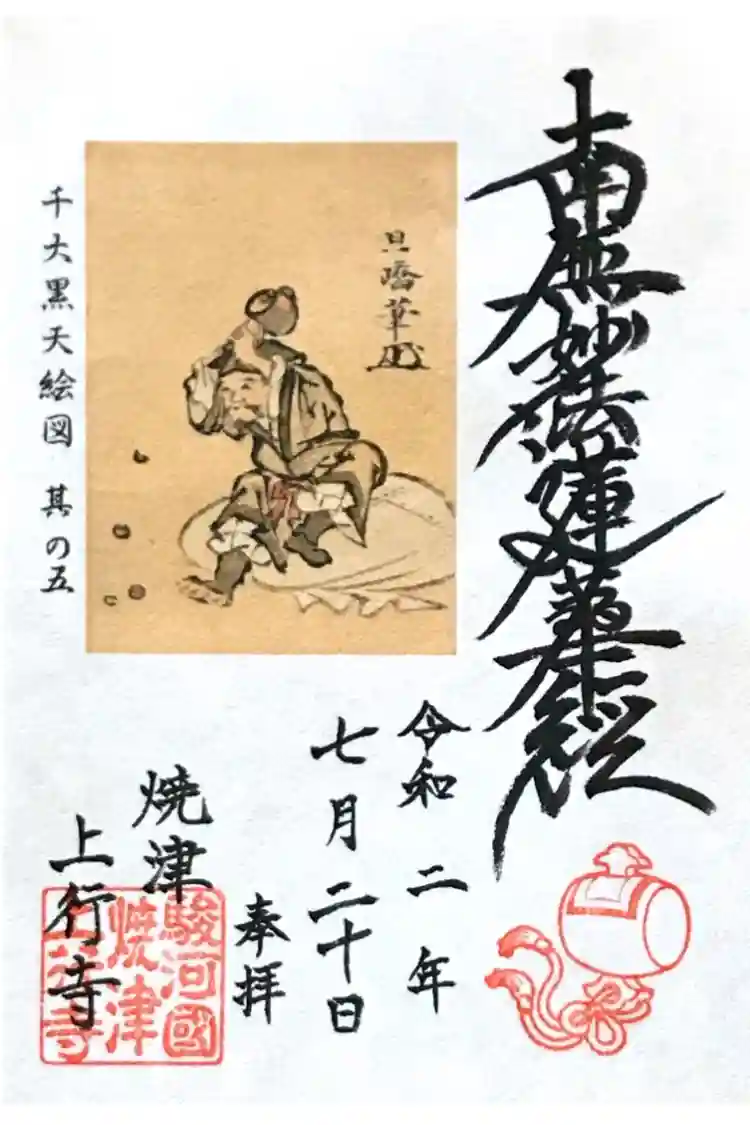 南無妙法蓮華経
令和二年
七月二十日
奉拝
焼津
上行寺
千大黒天絵図 其の五
駿河國
焼津
上行寺